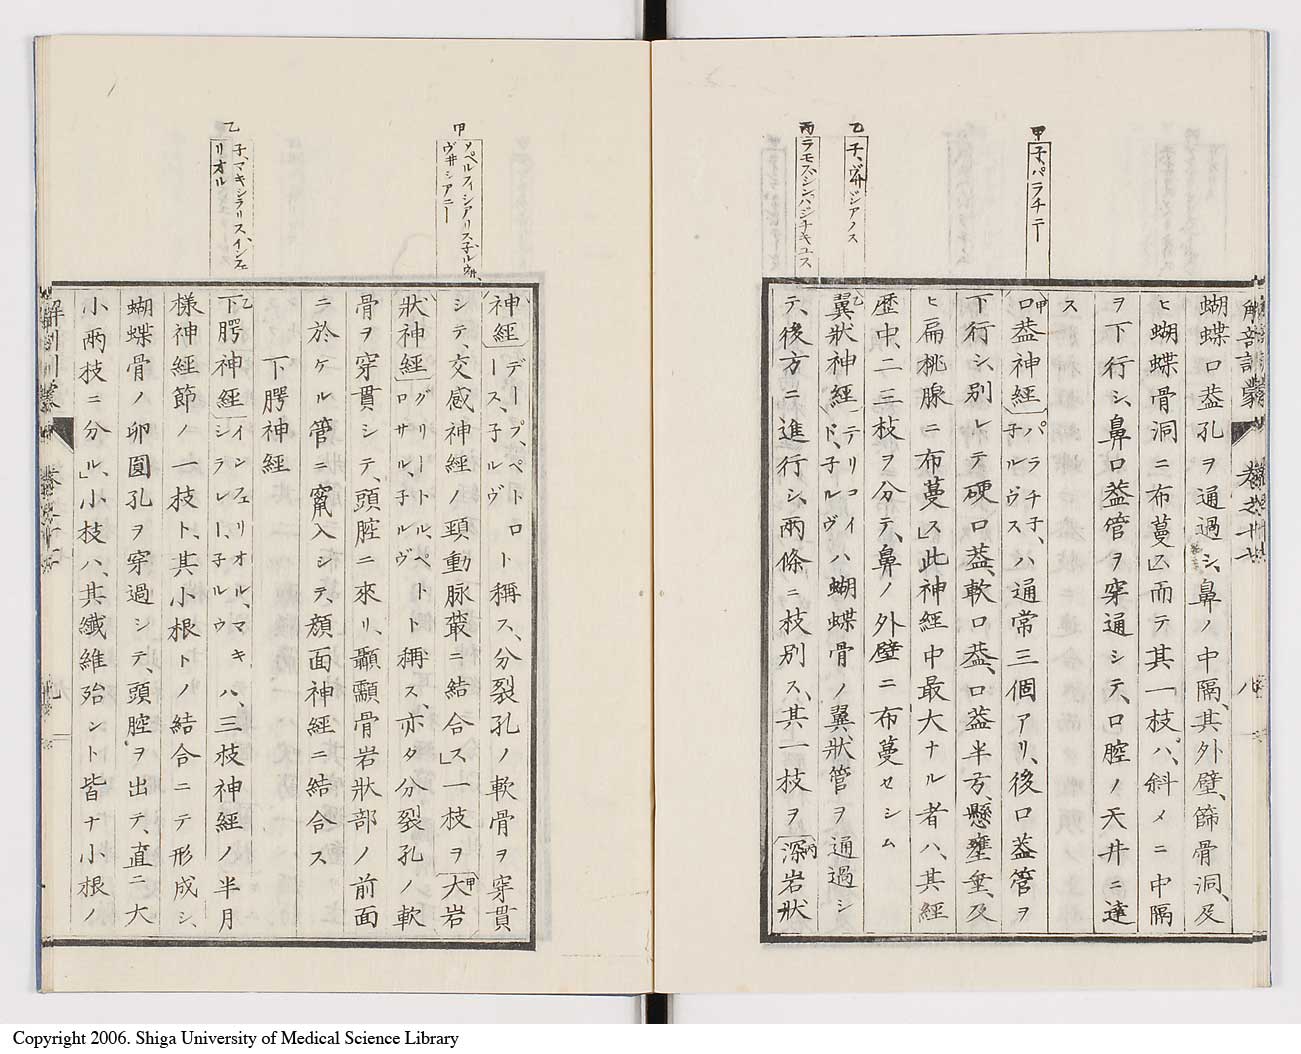 解剖訓蒙 巻之十七 八
甲 子、パラチニー
乙 子、ヴ井ジアノス
丙 ラモス、シンハジチキュス
蝴蝶口葢孔ヲ通過シ、鼻ノ中隔、其外壁、篩骨洞、及
ヒ蝴蝶骨洞ニ布蔓」而テ其一枝ハ、斜メニ中隔
ヲ下行シ、鼻口葢管ヲ穿通シテ、口腔ノ天井ニ達
ス
甲口葢神經パラチ子、子ルヴスハ通常三個アリ、後口葢管ヲ
下行シ、別レテ硬口葢、軟口葢、口葢半弓、懸壅垂、及
ヒ扁桃腺ニ布蔓ス」此神經中最大ナル者ハ、其經
歴中、二三枝ヲ分テ、鼻ノ外壁ニ布蔓セシム
乙翼狀神經テリコイド、子ルヴハ蝴蝶骨ノ翼狀管ヲ通過シ
テ、後方ニ進行シ、兩條ニ枝別ス、其一枝ヲ丙深岩狀
甲 ソペルフィシアリス、子ルウ井、
ヴ井シアニー
乙 子、マキシラリス、インフェ
リオル
神經デープ、ペトロース、子ルヴト稱ス、分裂孔ノ軟骨ヲ穿貫
シテ、交感神經ノ頸動脉叢ニ結合ス」一枝ヲ甲大岩
狀神經グリートル、ペトロサル、子ルヴト稱ス、亦タ分裂孔ノ軟
骨ヲ穿貫シテ、頭腔ニ來リ、顳顬骨岩狀部ノ前面
ニ於ケル管ニ竄入シテ、顏面神經ニ結合ス
下腭神經
乙下腭神經インフェリオル、マキシラレー、子ルウハ、三枝神經ノ半月
樣神經節ノ一枝ト、其小根トノ結合ニテ形成シ、
蝴蝶骨ノ卵圓孔ヲ穿過シテ、頭腔ヲ出テ、直ニ大
小兩枝ニ分ル、」小枝ハ、其纖維殆ント皆ナ小根ノ
解剖訓蒙 巻之十七 九
Copyright 2006. Shiga University of Medical Science Library